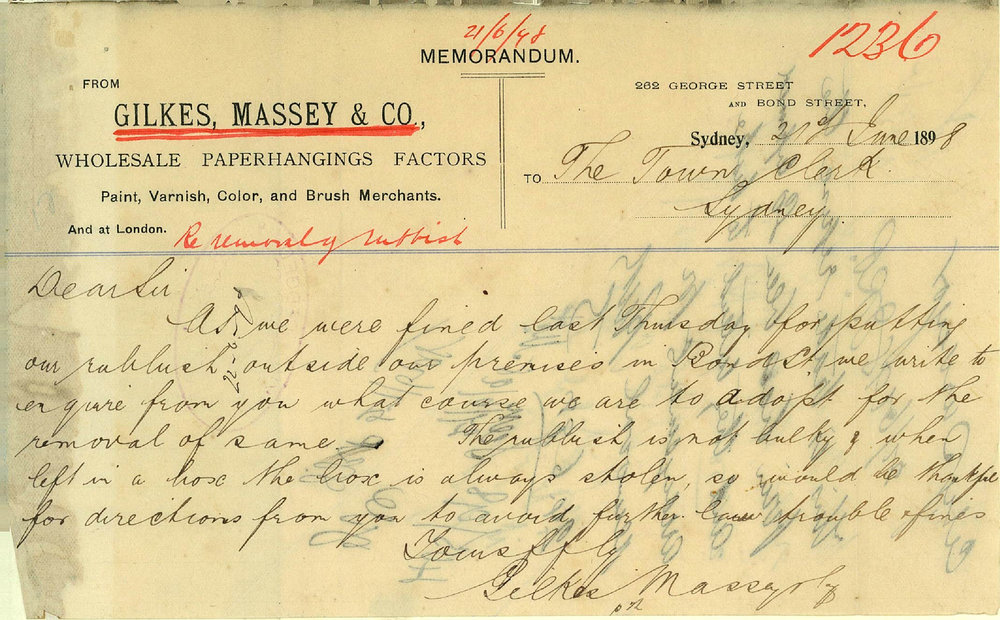 21/6/98
1236
MEMORANDUM.
FROM
GILKES, MASSEY & CO.,
WHOLESALE PAPERHANGINGS FACTORS
Paint, Varnish, Color, and Brush Merchants.
And at London.
Re removal of rubbish
262 GEORGE STREET
AND BOND STREET,
Sydney, 21st June 1898
TO The Town Clerk
Sydney.
Dear Sir
As we were fined last Thursday for putting
our rubbish outside our premises in Bond St. we write to
enquire from you what course we are to adopt for the
removal of same. The rubbish is not bulky & when
left in a box the box is always stolen, so would be thankful
for directions from you to avoid further law trouble & fines
Yours ffly
Gilkes Massey & Co